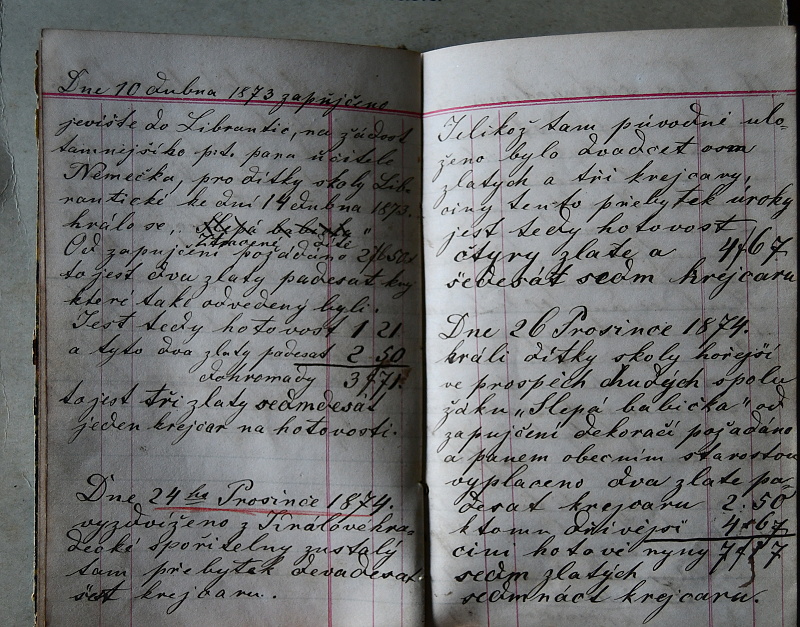 Dne 10 dubna 1873 zapujčeno
jeviště do Librantic, na žádost
tamnějšího p.t. pana učitele
Němečka, pro dítky školy Lib-
rantické, ke dni 14 dubna 1873.
hrálo se, „Slepá babička"
Ztracené dítě
Od zapujčení požádáno 2f 50k
to jest dva zlaty padesat kry
které také odvedeny byli.
Jest tedy hotovost 1 21
a tyto dva zlaty padesat 2 50
dohromady 3f 71
to jest tři zlaty sedmdesát
jeden krejcar na hotovosti.
Dne 24 ho Prosince 1874.
vyzdviženo z Kralovéhra-
decké spořitelny zustalý
tam přebytek devadesat
šest krejcaru.
Jelikož tam původně ulo-
ženo bylo dvadcet osm
zlatych a tři krejcary,
činy tento přebytek úroky
jest tedy hotovost
čtyry zlate a 4f67
šedesát sedm krejcaru
Dne 26 Prosince 1874.
hráli dítky školy hořejší
ve prospěch chudých spolu
žáku „Slepá babička" od
zapujčení dekorací požádáno
a panem obecním starostou
vyplaceno dva zlate pa-
desat krejcaru 2.50
ktomu dřívejsí 4f67
činí hotové nyny 7f17
sedm zlatých
sedmnáct krejcaru.